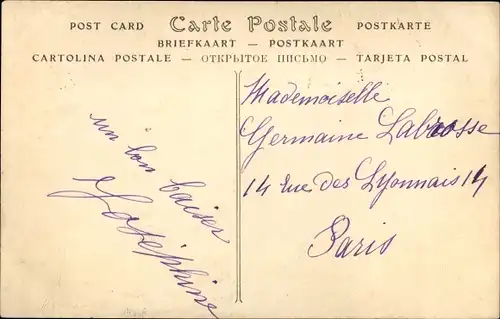 POST CARD Carte Postale POSTKARTE
BRIEFKAART — POSTKAART
CARTOLINA POSTALE — ОТКРЫТОЕ ПИСЬМО — TARJETA POSTAL
un bon baiser
Joséphine
Mademoiselle
Germaine Labrosse
14 rue des Lyonnais 14
Paris